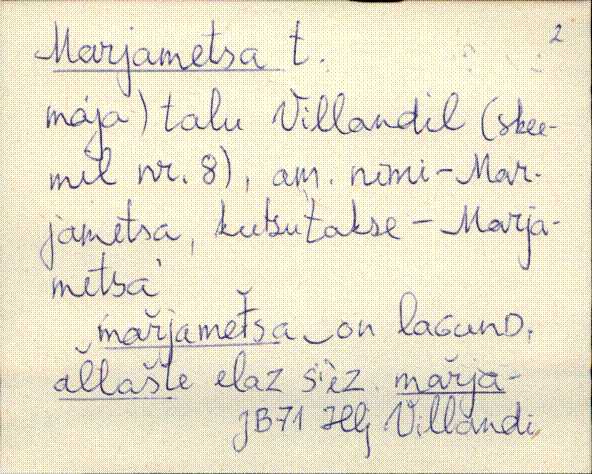 2
Marjametsa t.
maja) talu Villandil (skee-
mil nr. 8), am. nimi - Mar-
jametsa, kutsutakse - Marja-
metsa
mar̆jamet̆sa on lagund,
al̆laste elaz siez mar̆ja-
JB71 Hlj Villandi